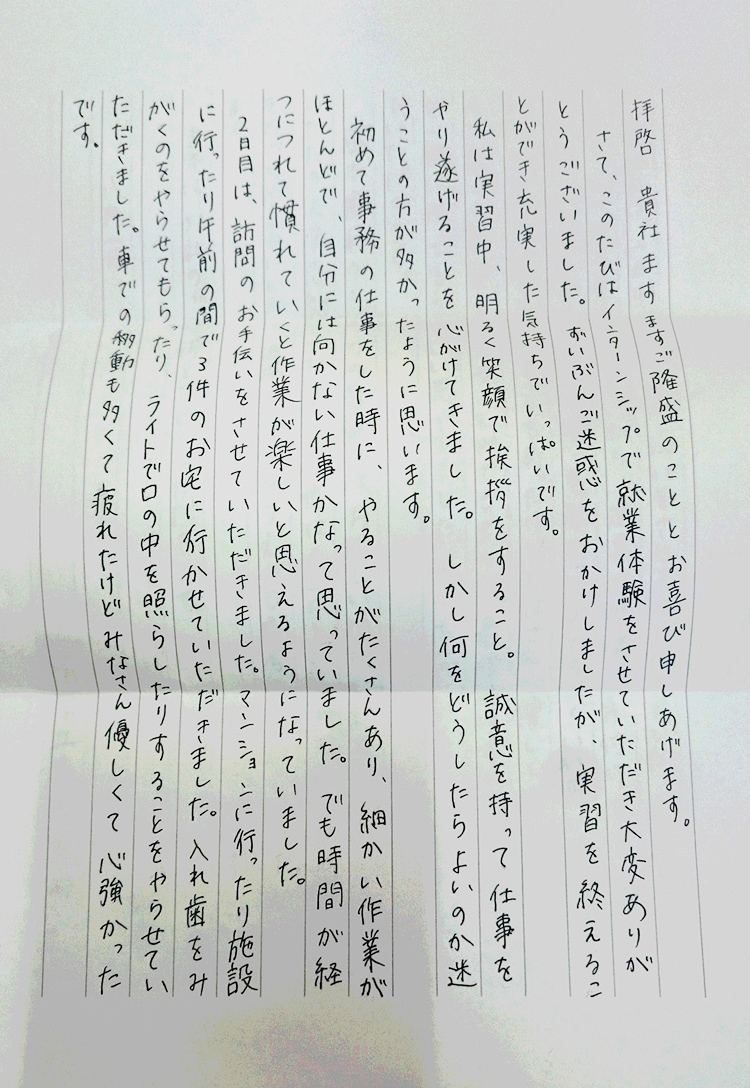 拝啓　貴社ますますご隆盛のこととお喜び申しあげます。
さて、このたびはインターンシップで就業体験をさせていただき大変ありが
とうございました。ずいぶんご迷惑をおかけしましたが、実習を終えるこ
とができ充実した気持ちでいっぱいです。
私は実習中、明るく笑顔で挨拶をすること。誠意を持って仕事を
やり遂げることを心がけてきました。しかし何をどうしたらよいのか迷
うことの方が多かったように思います。
初めて事務の仕事をした時に、やることがたくさんあり、細かい作業が
ほとんどで、自分には向かない仕事かなって思っていました。でも時間が経
つにつれて慣れていくと作業が楽しいと思えるようになっていました。
2日目は、訪問のお手伝いをさせていただきました。マンションに行ったり施設
に行ったり午前の間で3件のお宅に行かせていただきました。入れ歯をみ
がくのをやらせてもらったり、ライトで口の中を照らしたりすることをやらせてい
ただきました。車での移動も多くて疲れたけどみなさん優しくて心強かった
です。